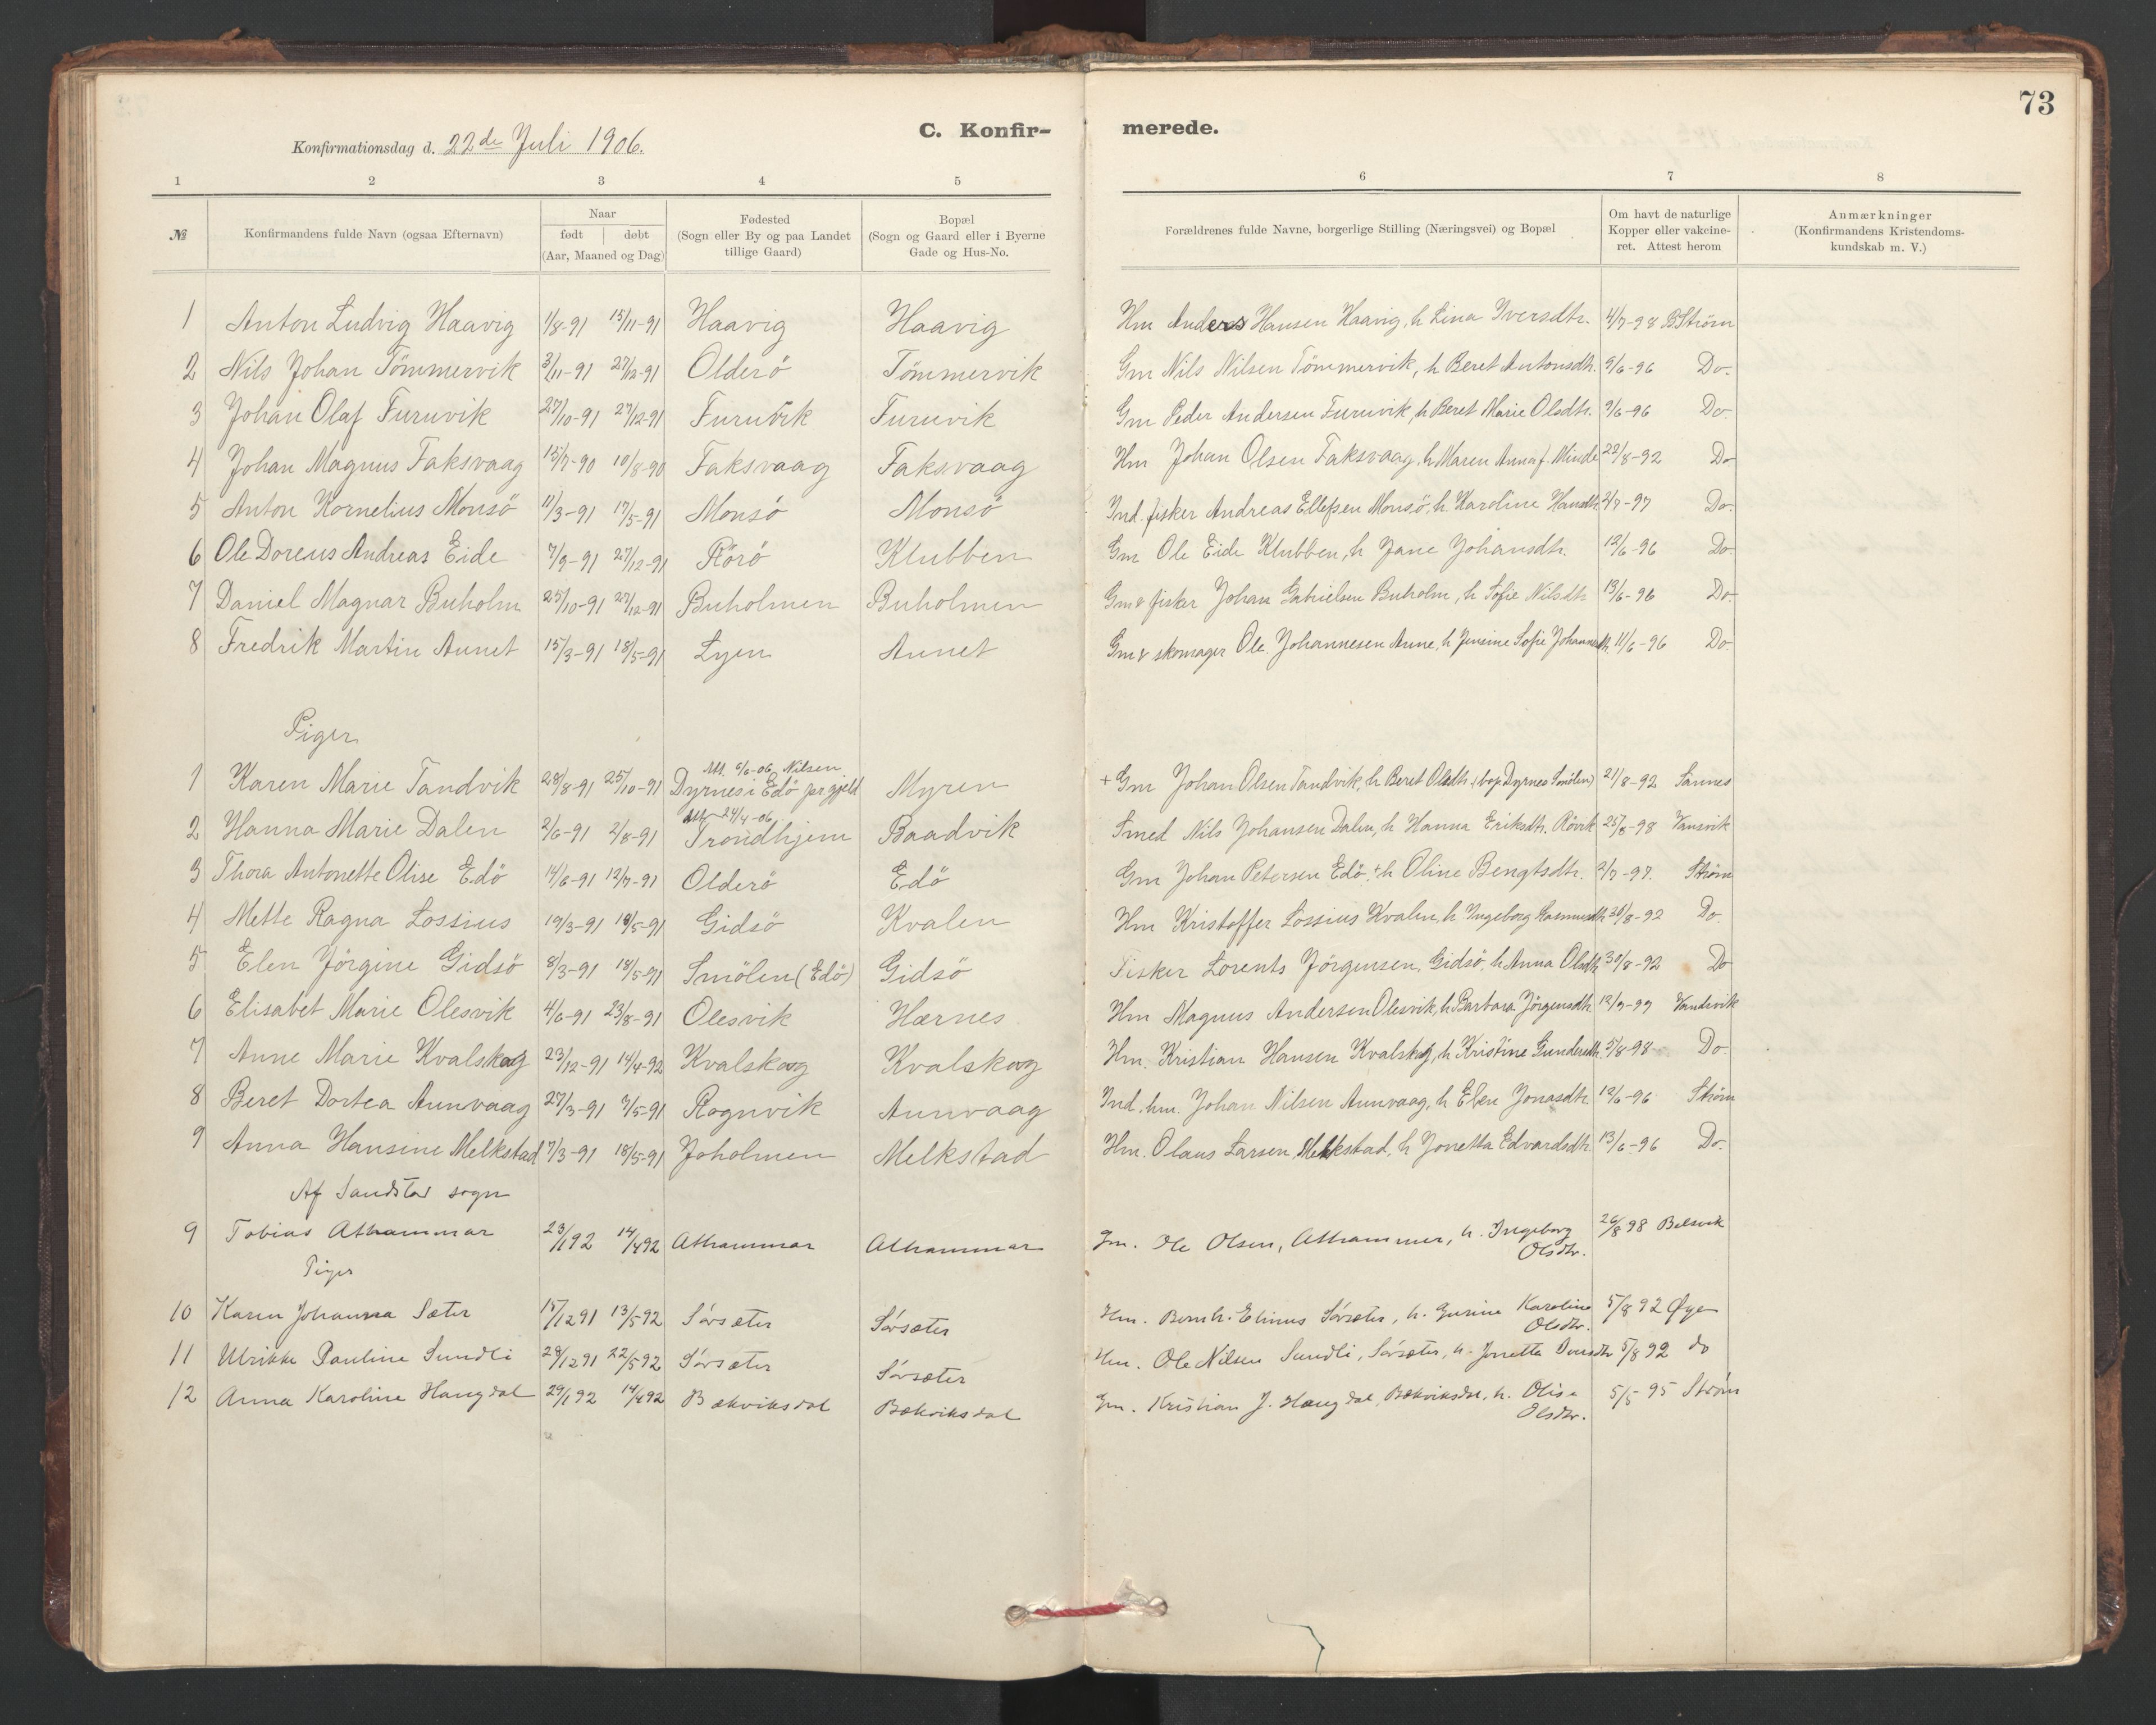 73
C. Konfir- merede.
Konfirmationsdag d. 22de Juli 1906.
1 2 3 4 5 6 7 8
№ Konfirmandens fulde Navn (ogsaa Efternavn) Naar født døbt (Aar, Maaned og Dag) Fødested (Sogn eller By og paa Landet tillige Gaard) Bopæl (Sogn og Gaard eller i Byerne Gade og Hus-No. Forældrenes fulde Navne, borgerlige Stilling (Næringsvei) og Bopæl Om havt de naturlige Kopper eller vakcineret. Attest herom Anmærkninger (Konfirmandens Kristendomskundskab m. V.)
1 Anton Ludvig Haavig 1/8-91 15/11-91 Haavig Haavig Hm Anders Hansen Haavig, h Lina Iversdtr. 4/7-98 BStrøm
2 Nils Johan Tömmervik 3/11-91 27/12-91 Olderö Tömmervik Gm Nils Nilsen Tömmervik, h Beret Antonsdtr. 9/6-96 Do.
3 Johan Olaf Furuvik 27/10-91 27/12-91 Furuvik Furuvik Gm Peder Andersen Furuvik, h Beret Marie Olsdtr. 9/6-96 Do
4 Johan Magnus Faksvaag 15/7-90 10/8-90 Faksvaag Faksvaag Hm Johan Olsen Faksvaag, h Maren Anna f. Minde 22/8-92 Do
5 Anton Kornelius Monsö 11/3-91 17/5-91 Monsö Monsö Ind. fisker Andreas Ellefsen Monsö, h Karoline Hansdtr. 2/7-97 Do.
6 Ole Doreus Andreas Eide 7/9-91 27/12-91 Rörö Klubben Gm Ole Eide Klubben, h Jane Johansdtr. 12/6-96 Do
7 Daniel Magnar Buholm 25/10-91 27/12-91 Buholmen Buholmen Gm & fisker Johan Gabrielsen Buholm, h Sofie Nilsdtr 13/6-96 Do
8 Fredrik Martin Aunet 15/3-91 18/5-91 Lyen Aunet Gm & skomager Ole Johannesen Aune, h Jensine Sofie Johannesdtr. 11/6-96 Do.
Piger
1 Karen Marie Tandvik 28/8-91 25/10-91 Att. 6/6-06 Nilsen Dyrnes i Edö prgjeld Myren + Gm Johan Olsen Tandvik, h Beret Olsdtr. (bop. Dyrnes Smölen) 21/8-92 Sannes
2 Hanna Marie Dalen 2/6-91 2/8-91 Att 24/4-06 Trondhjem Baadvik Smed Nils Johansen Dalen, h Hanna Eriksdtr. Rövik 25/8-98 Vansvik
3 Thora Antonette Olise Edö 14/6-91 12/7-91 Olderö Edö Gm Johan Petersen Edö, + h Oline Bengtsdtr. 2/7-97. Strøm
4 Mette Ragna Lossius 19/3-91 19/5-91 Gidsö Kvalen Hm Kristoffer Lossius Kvalen, h. Ingeborg Rasmusdtr 30/8-92 Do.
5 Elen Jörgine Gidsö 8/3-91 18/5-91 Smölen (Edö) Gidsö Fisker Lorents Jörgensen, Gidsö, h Anna Olsdtr. 30/8-92 Do
6 Elisabet Marie Olesvik 4/6-91 23/8-91 Olesvik Hærnes Hm Magnus Andersen Olesvik, h Barbara Jörgensdtr. 12/9-99 Vandsvik
7 Anne Marie Kvalskog 23/12-91 14/4-92 Kvalskog Kvalskog Hm. Kristian Hansen Kvalskog, h Kristine Gundersdtr. 5/8-98 Do.
8 Beret Dortea Aunvaag 27/3-91 7/5-91 Rognvik Aunvaag Ind. hm. Johan Nilsen Aunvaag, h Elen Jonasdtr. 12/6-96 Strøm
9 Anna Hansine Melkstad 7/3-91 18/5-91 Joholmen Melkstad Hm. Olaus Larsen Melkstad, h Jonetta Edvardsdtr. 13/6-96 Do.
Af Sandstad sogn
9 Tobias Athammar 23/1 92 14/4 92 Athammar Athammar Gm. Ole Olsen, Athammer, h. Ingeborg Olsdtr. 26/8 98 Belsvik
Piger
10 Karen Johanna Sæter 15/12 91 13/5 92 Sörsæter Sörsæter Hm. Bernh. Elinus Sörsæter, h. Gurine Karoline Olsdtr. 5/8 92 Øyen
11 Ulrikke Pauline Sundli 28/12 91 22/5 92 Sörsæter Sörsæter Hm. Ole Nilsen Sundli, Sörsæter, h. Jonetta 5/8 92 do
12 Anna Karoline Haugdal 29/1 92 14/4 92 Bækviksdal Bækviksdal Gm. Kristian J. Haugdal, Bækviksdal, h. Olise Olsdtr. 5/5 95 Strøm